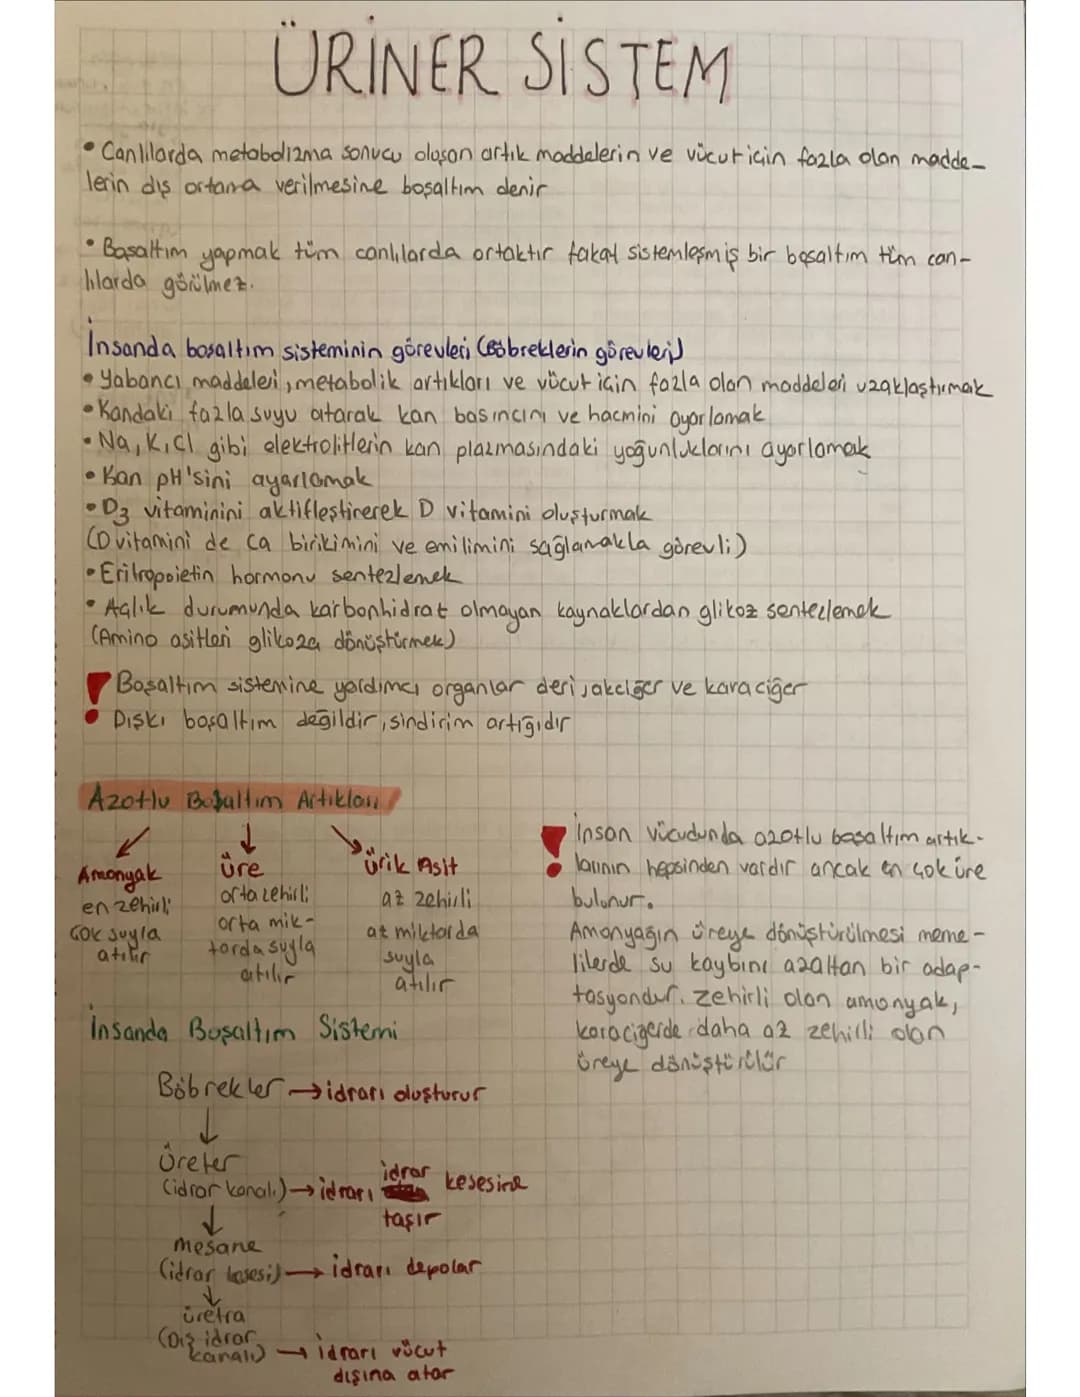 ÜRİNER SİSTEM
• Canlılarda metabolizma sonucu oluşan artık maddelerin ve vücut için fazla olan madde-
lerin dış ortama verilmesine boşaltım denir
• Boşaltım yapmak tüm canlılarda ortaktır fakat sistemleşmiş bir boşaltım tüm can-
lılarda görülmez.
İnsanda boşaltım sisteminin görevleri (Böbreklerin görevleri)
• Yabancı maddeleri, metabolik artıkları ve vücut için fazla olan maddeleri uzaklaştırmak
• Kandaki fazla suyu atarak kan basıncını ve hacmini ayarlamak
• Na, K, Cl gibi elektrolitlerin kan plazmasındaki yoğunluklarını ayarlamak
• Kan pH'sini ayarlamak
• D3 vitaminini aktifleştirerek D vitamini oluşturmak
(D vitamini de Ca birikimini ve emilimini sağlamakla görevli)
• Eritropoietin hormonu sentezlemek
• Açlık durumunda karbonhidrat olmayan kaynaklardan glikoz sentezlemek
(Amino asitleri glikoza dönüştürmek)
! Boşaltım sistemine yardımcı organlar deri, akciğer ve karaciğer
Dışkı boşaltım değildir, sindirim artığıdır
Azotlu Boşaltım Artıkları
Amonyak
en zehirli
çok suyla
atılır
üre
orta zehirli
orta mik-
tarda suyla
atılır
ürik Asit
az zehirli
az miktarda
suyla
atılır
! İnsan vücudunda azotlu boşaltım artık-
larının hepsinden vardır ancak en çok üre
bulunur.
Amonyağın üreye dönüştürülmesi meme-
lilerde su kaybını azaltan bir adap-
tasyondur. Zehirli olan amonyak,
karaciğerde daha az zehirli olan
üreye dönüştürülür
İnsanda Boşaltım Sistemi
Böbrekler → idrarı oluşturur
↓
Üreter
(idrar kanalı) → idrarı idrar kesesine
taşır
↓
mesane
(idrar kesesi) → idrarı depolar
↓
üretra
(Dış idrar
kanalı) → idrarı vücut
dışına atar